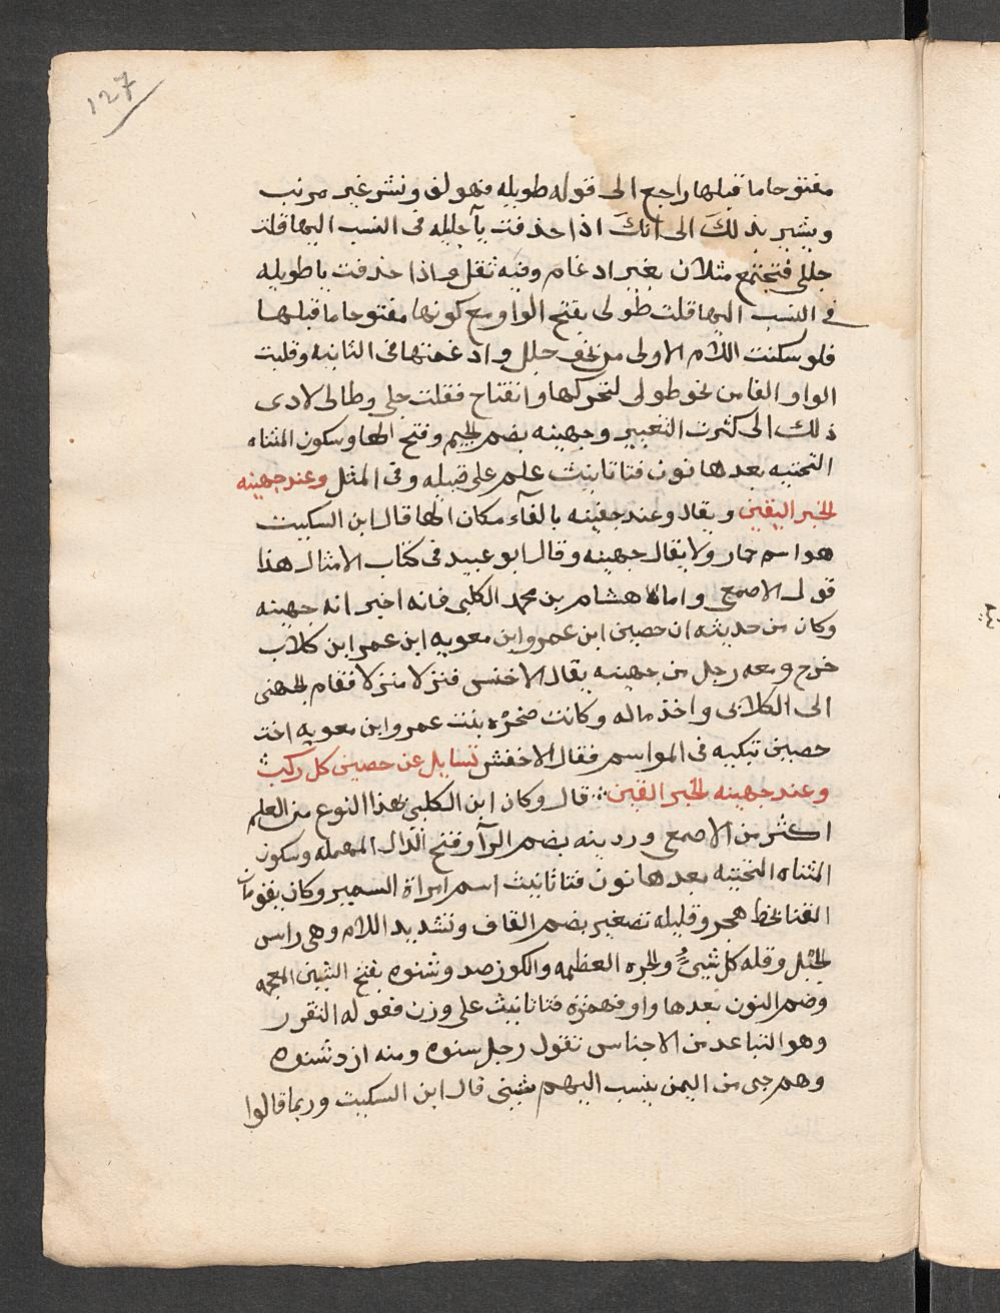 127
مفتوحا ما قبلها راجع الى قوله طويله فهو لف ونشر غير مرتب
ويشير بذلكَ الى انكَ اذا حذفت يآ جليله فى النسب اليها قلت
جللى فتجتمع مثلان بغير ادغام وفيه ثقل واذا حذفت يا طويله
فى النسب اليها قلت طولى بفتح الواو مع كونها مفتوحا ما قبلها
فلو سكنت اللام الاولى من نحو جلل وادغمتها فى الثانيه وقلبت
الواو الفا من نحو طولى لتحركها وانفتاح فقلت جلى وطالى لادى
ذلك الى كثرت التغيير وجهينه بضم الجيم وفتح الها وسكون المثناه
التحتيه بعدها نون فتا تانيث علم على قبيله وفى المثل وعند جهينه
الخبر اليقين ويقال وعند جفينه بالفآء مكان الها قال ابن السكيت
هو اسم خمار ولا يقال جهينه وقال ابو عبيد فى كتاب الامثال هذا
قول الاصمعى واما هشام بن محمد الكلبى فانه اخبر انه جهينه
وكان من حديثه ان حصين ابن عمرو ابن معويه ابن عمر ابن كلاب
خرج ومعه رجل من جهينه يقال الاخنس فنزلا منزلا فقام الجهنى
الى الكلابى واخذ ماله وكانت صخره بنت عمرو ابن معويه اخت
حصين تبكيه فى المواسم فقال الاخفش تسايل عن حصين كل ركب
وعند جهينه الخبر القين قال وكان ابن الكلبى بهذا النوع من العلم
اكثر من الاصمعى وردينه بضم الرآ وفتح الدال المهمله وسكون
المثناه التحتيه بعدها نون فتا تانيث اسم امراة السمير وكان يقومان
القنا بخط هجر وقليله تصغير بضم القاف وتشديد اللام وهى راس
الجبل وقله كل شىء والجره العظيمه والكوز صد وشنوه بفتح الشين المعجمه
وضم النون بعدها واو فهمزه فتا تانيث على وزن فعوله التقزر
وهو التباعد من الاجناس تقول رجل سنوه ومنه ازد شنوه
وهم حى من اليمن ينسب اليهم شينى قال ابن السكيت وربما قالوا